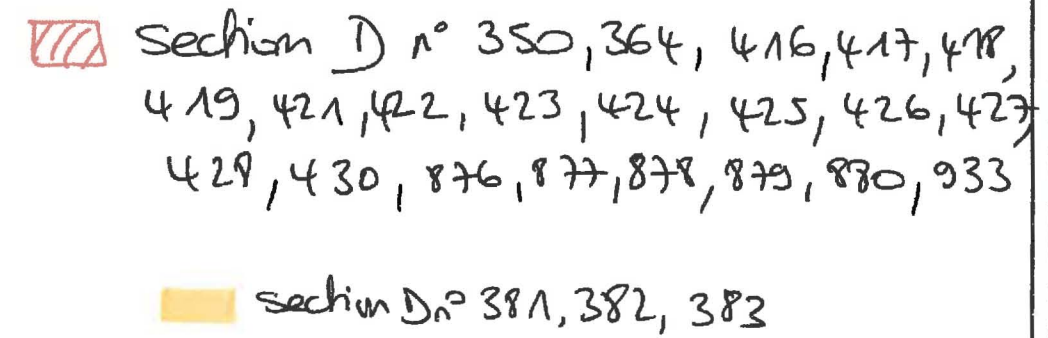 Section D n° 350, 364, 416, 417, 418,
419, 421, 422, 423, 424, 425, 426, 427,
428, 430, 876, 877, 878, 879, 880, 933
section D n° 381, 382, 383